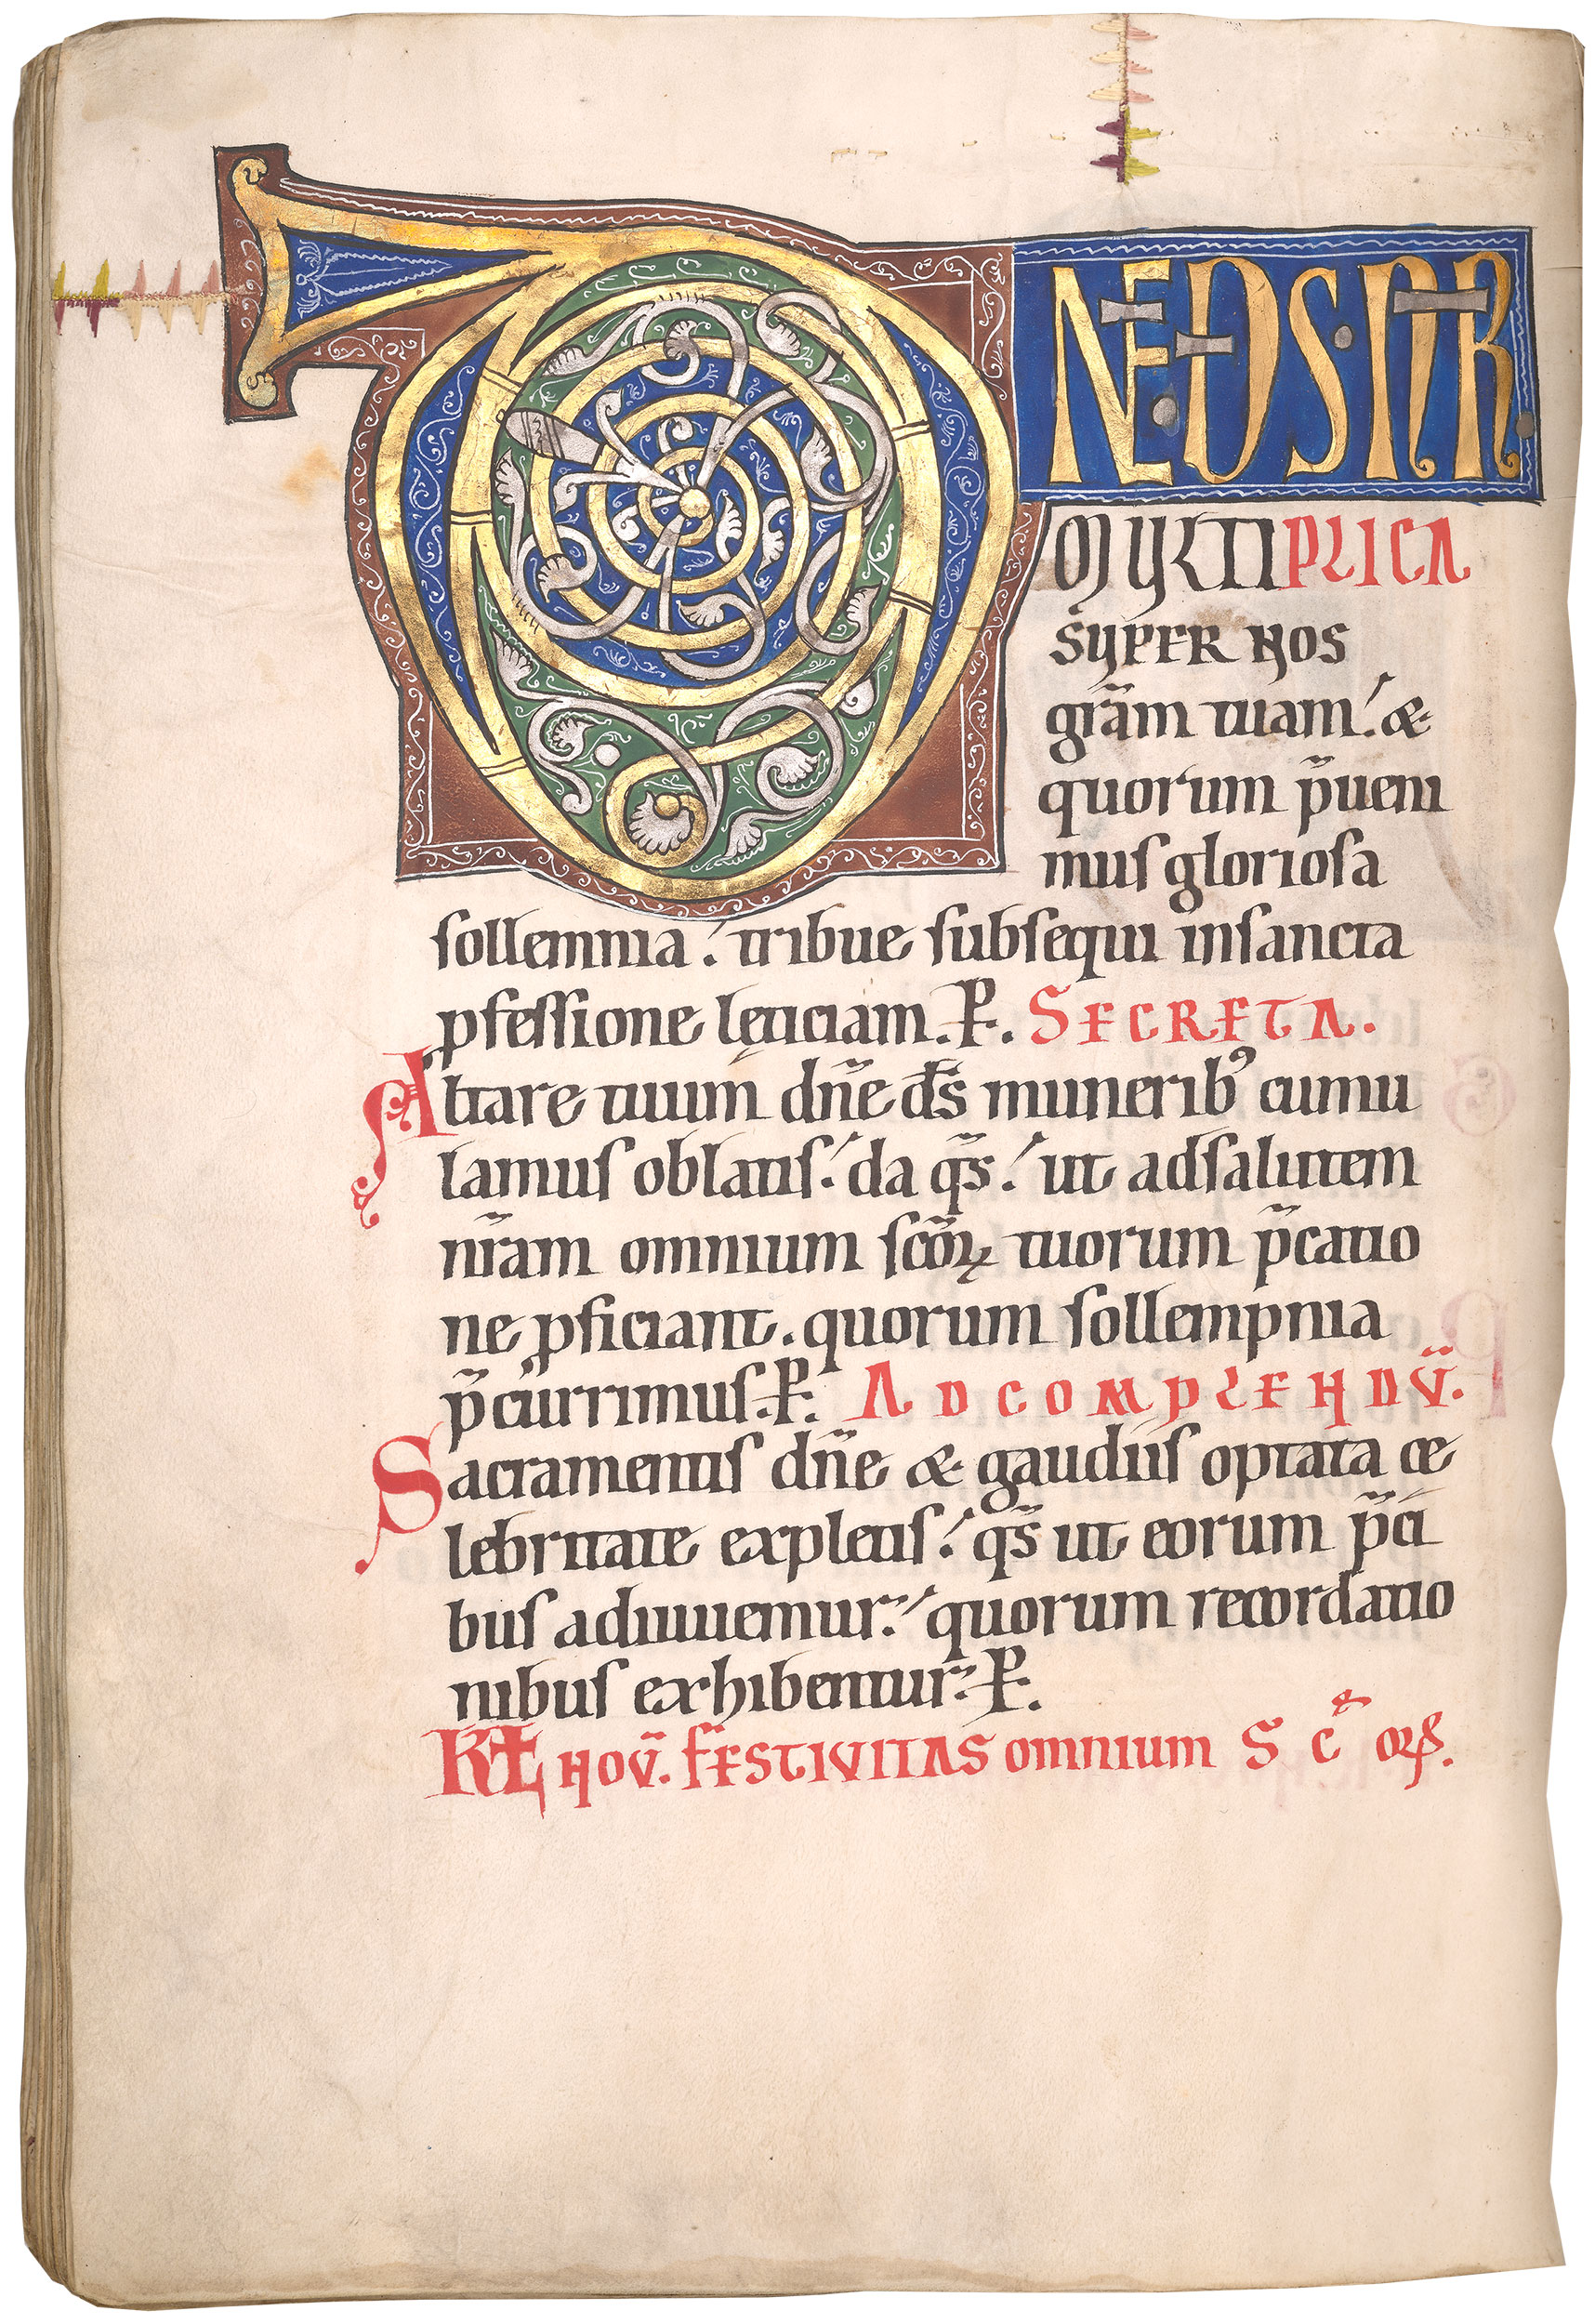 DNE·DS·NR̅
MULTIPLICA
SUPER NOS
gr̅am tuam. &
quorum p̅ueni
mus gloriosa
sollemnia. tribue subsequi insancta
ꝓfessione lęticiam. P. SECRETA.
Altare tuum dn̅e ds̅ munerib᾽ cumu
lamus oblatis. da qs̅. ut adsalutem
nr̅am omnium sc̅oꝝ tuorum p̅catio
ne ꝓficiant. quorum sollempnia
p̅currimus. P. AD COMPLENDU̅.
Sacramentis dn̅e & gaudiis optata ce
lebritate expletis. qs̅ ut eorum p̅ci
bus adiuuemur. quorum recordatio
nibus exhibentur. P.
KL NOV̅. FESTIVITAS omnium SC̅oꝝ.